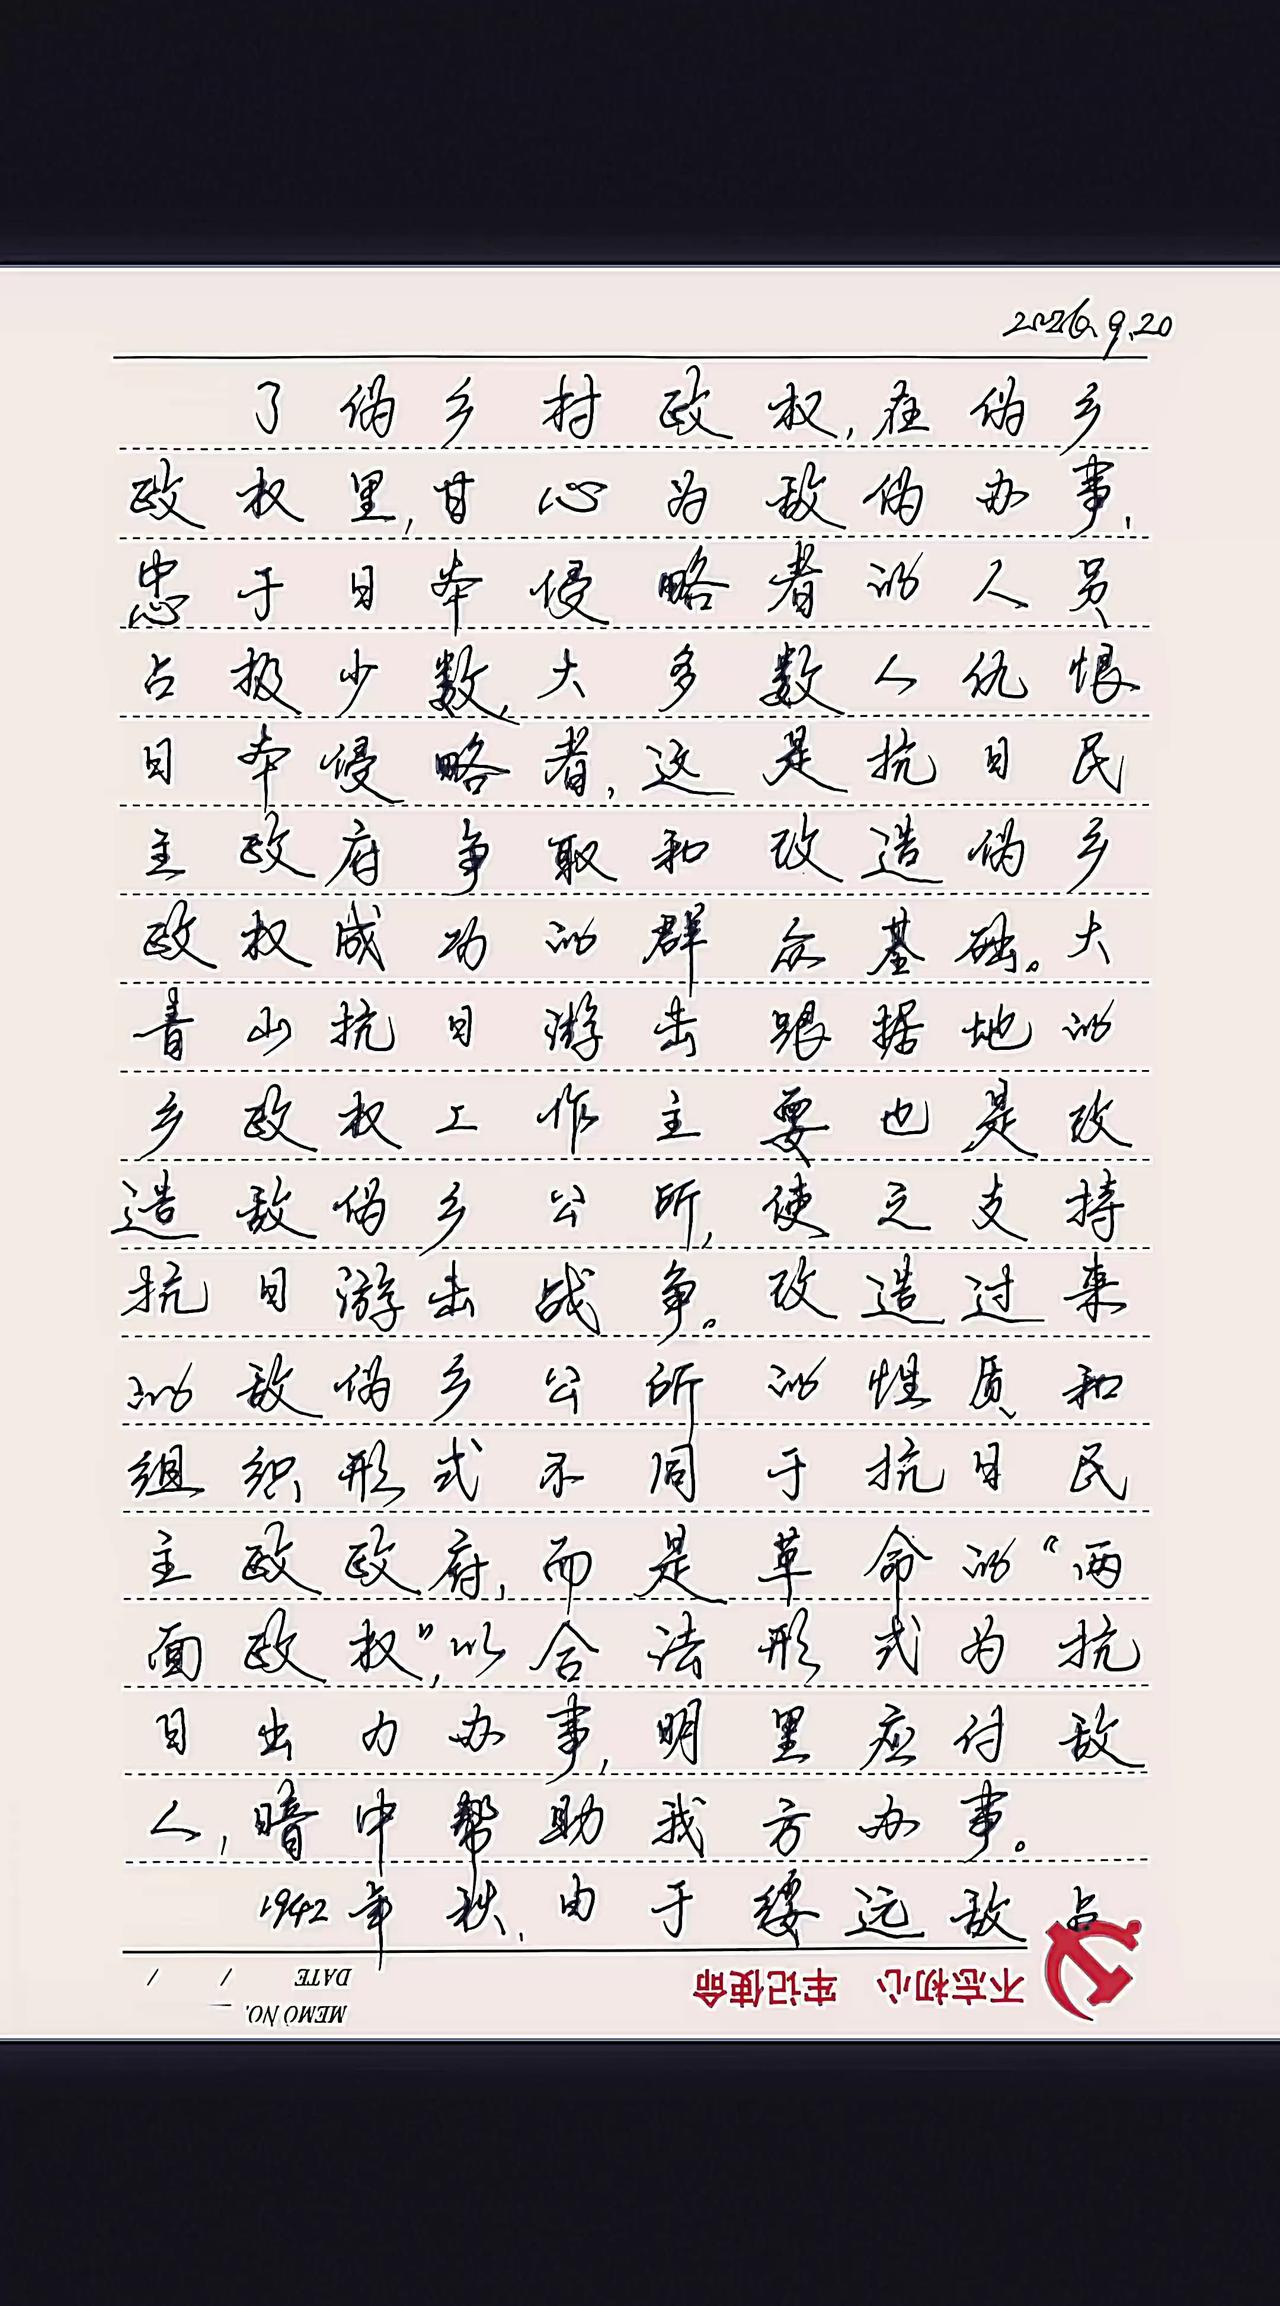 2026.9.20
了伪乡村政权,在伪乡
政权里,甘心为敌伪办事,
忠于日本侵略者的人员
占极少数,大多数人仇恨
日本侵略者,这是抗日民
主政府争取和改造伪乡
政权成功的群众基础。大
青山抗日游击根据地的
乡政权工作主要也是改
造敌伪乡公所,使之支持
抗日游击战争。改造过来
的敌伪乡公所的性质和
组织形式不同于抗日民
主政政府,而是革命的“两
面政权”,以合法形式为抗
日出力办事,明里应付敌
人,暗中帮助我方办事。
1942年秋,由于绥远敌占
不忘初心 牢记使命
DATE / /
MEMO NO.